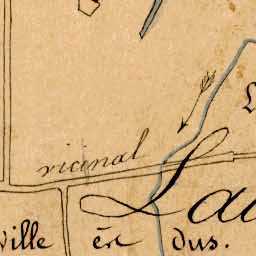 vicinal
La
ville
dus.